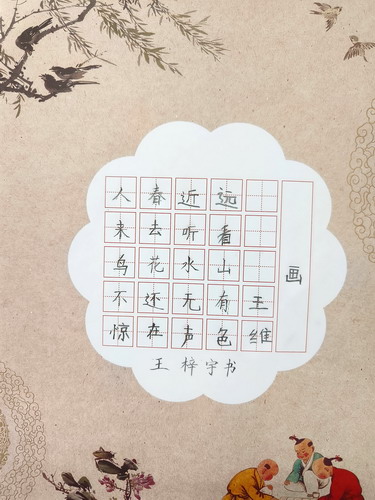 画
王维
远看山有色
近听水无声
春去花还在
人来鸟不惊
王梓宇书